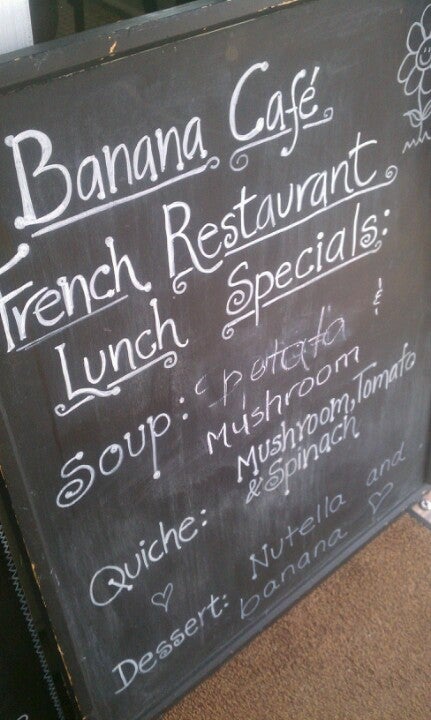 Banana Café
French Restaurant
Lunch Specials:
Soup: potato &
Mushroom
Quiche: Mushroom, Tomato
& Spinach
Dessert: Nutella and
banana